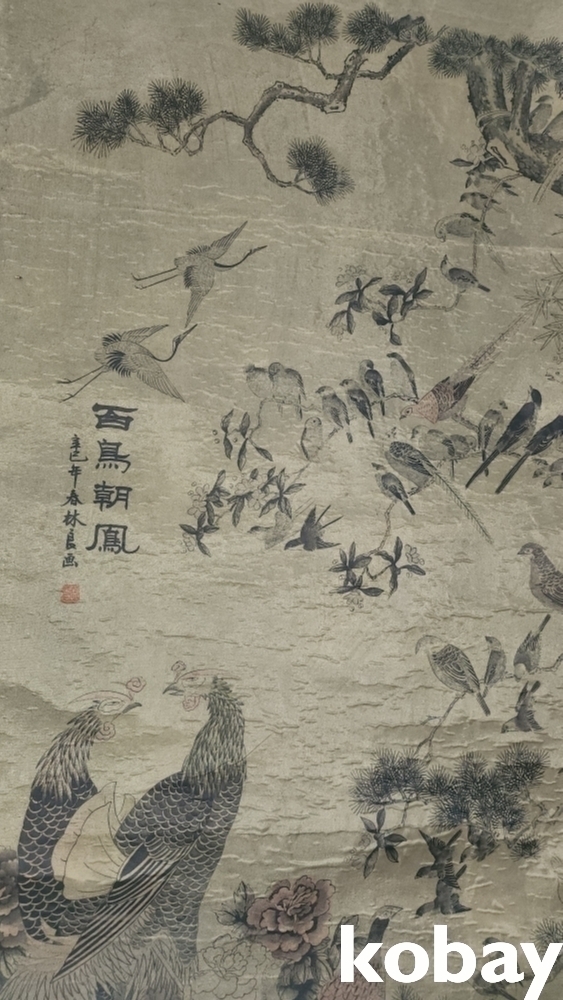 百鳥朝鳳
辛巳年春林良画
kobay